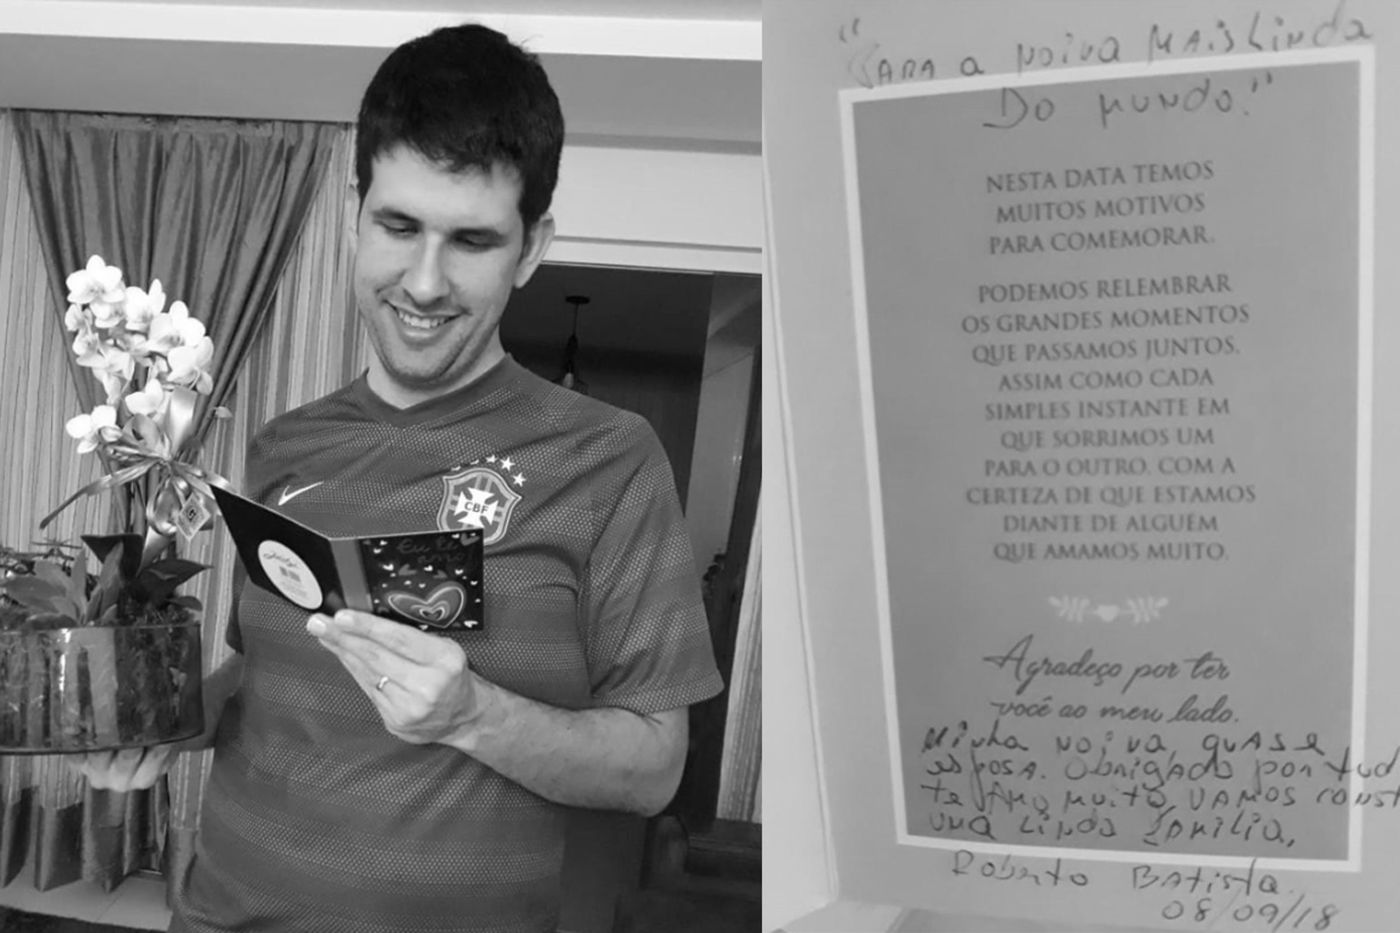 CBF
Eu te
amo!
"Para a noiva mais linda
Do mundo!"
NESTA DATA TEMOS
MUITOS MOTIVOS
PARA COMEMORAR.
PODEMOS RELEMBRAR
OS GRANDES MOMENTOS
QUE PASSAMOS JUNTOS,
ASSIM COMO CADA
SIMPLES INSTANTE EM
QUE SORRIMOS UM
PARA O OUTRO, COM A
CERTEZA DE QUE ESTAMOS
DIANTE DE ALGUÉM
QUE AMAMOS MUITO.
Agradeço por ter
você ao meu lado.
Minha noiva, quase
esposa. Obrigado por tud
te Amo muito, vamos const
uma linda família,
Roberto Batista.
08/09/18